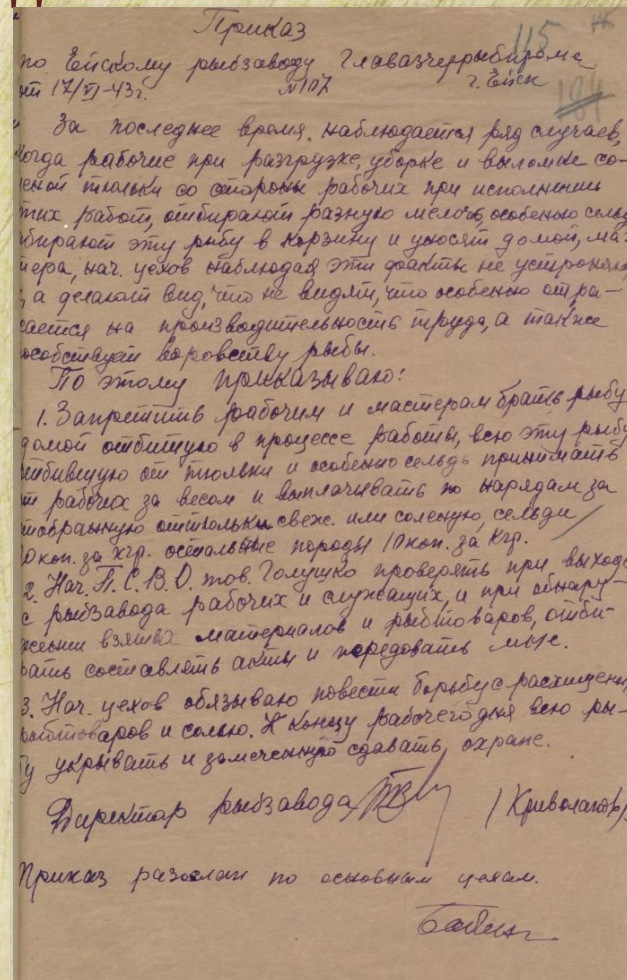 Приказ
115
по Ейскому рыбзаводу Главазчеррыбпрома
от 17/VI-43г. №107 г. Ейск
184
За последнее время наблюдается ряд случаев,
когда рабочие при разгрузке, уборке и выломке со-
леной тюльки со стороны рабочих при исполнении
этих работ, отбирают разную мелочь, особенно сельдь
бирают эту рыбу в корзину и уносят домой, ма-
тера, нач. цехов наблюдая эти факты не устроняют
, а делают вид, что не видят, что особенно отра-
жается на производительность труда, а также
пособствует воровству рыбы.
По этому приказываю:
1. Запретить рабочим и мастерам брать рыбу
домой отбитую в процессе работы, всю эту рыбу
отбившую от тюльки и особенно сельдь принимать
от рабочих за весом и выплачивать по нарядам за
отобранную от тюльки свеж. или соленую, сельди
0 коп. за кгр. остальные породы 10 коп. за кгр.
2. Нач. П.С.В.О. тов. Голушко проверять при выходе
с рыбзавода рабочих и служащих, и при обнару-
жении взятых материалов и рыботоваров, отби-
рать составлять акты и передовать мне.
3. Нач. цехов обязываю повести борьбу с расхищени
рыботоваров и солью. К концу рабочего дня всю ры-
бу укрывать и замеченную сдавать охране.
Директор рыбзавода /Криволапов/
Приказ разослан по основным цехам.